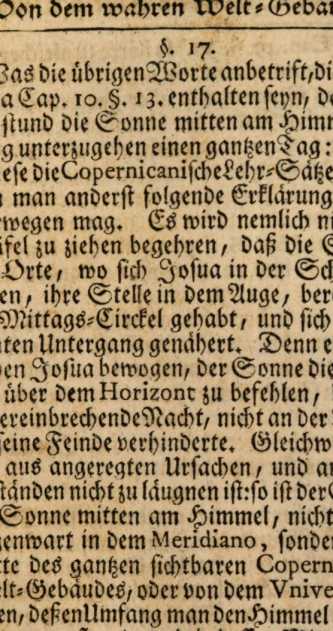 Von dem wahren Welt-Gebäu
§. 17.
Was die übrigen Worte anbetrift, di
a Cap. 10. §. 13. enthalten seyn, d
stund die Sonne mitten am Himm
g unterzugehen einen gantzen Tag:
ese die Copernicanische Lehr-Sätze
man anderst folgende Erklärung
rwegen mag. Es wird nemlich ni
ifel zu ziehen begehren, daß die S
Orte, wo sich Josua in der Sch
en, ihre Stelle in dem Auge, ber
Mittags-Circkel gehabt, und sich
ten Untergang genähert. Denn e
en Josua bewogen, der Sonne die
über dem Horizont zu befehlen,
ereinbrechende Nacht, nicht an der
seine Feinde verhinderte. Gleichw
aus angeregten Ursachen, und an
ständen nicht zu läugnen ist: so ist der
Sonne mitten am Himmel, nicht
genwart in dem Meridiano, sonder
tte des gantzen sichtbaren Copern
elt-Gebäudes, oder von dem Vnive
en, deßen Umfang man den Himmel